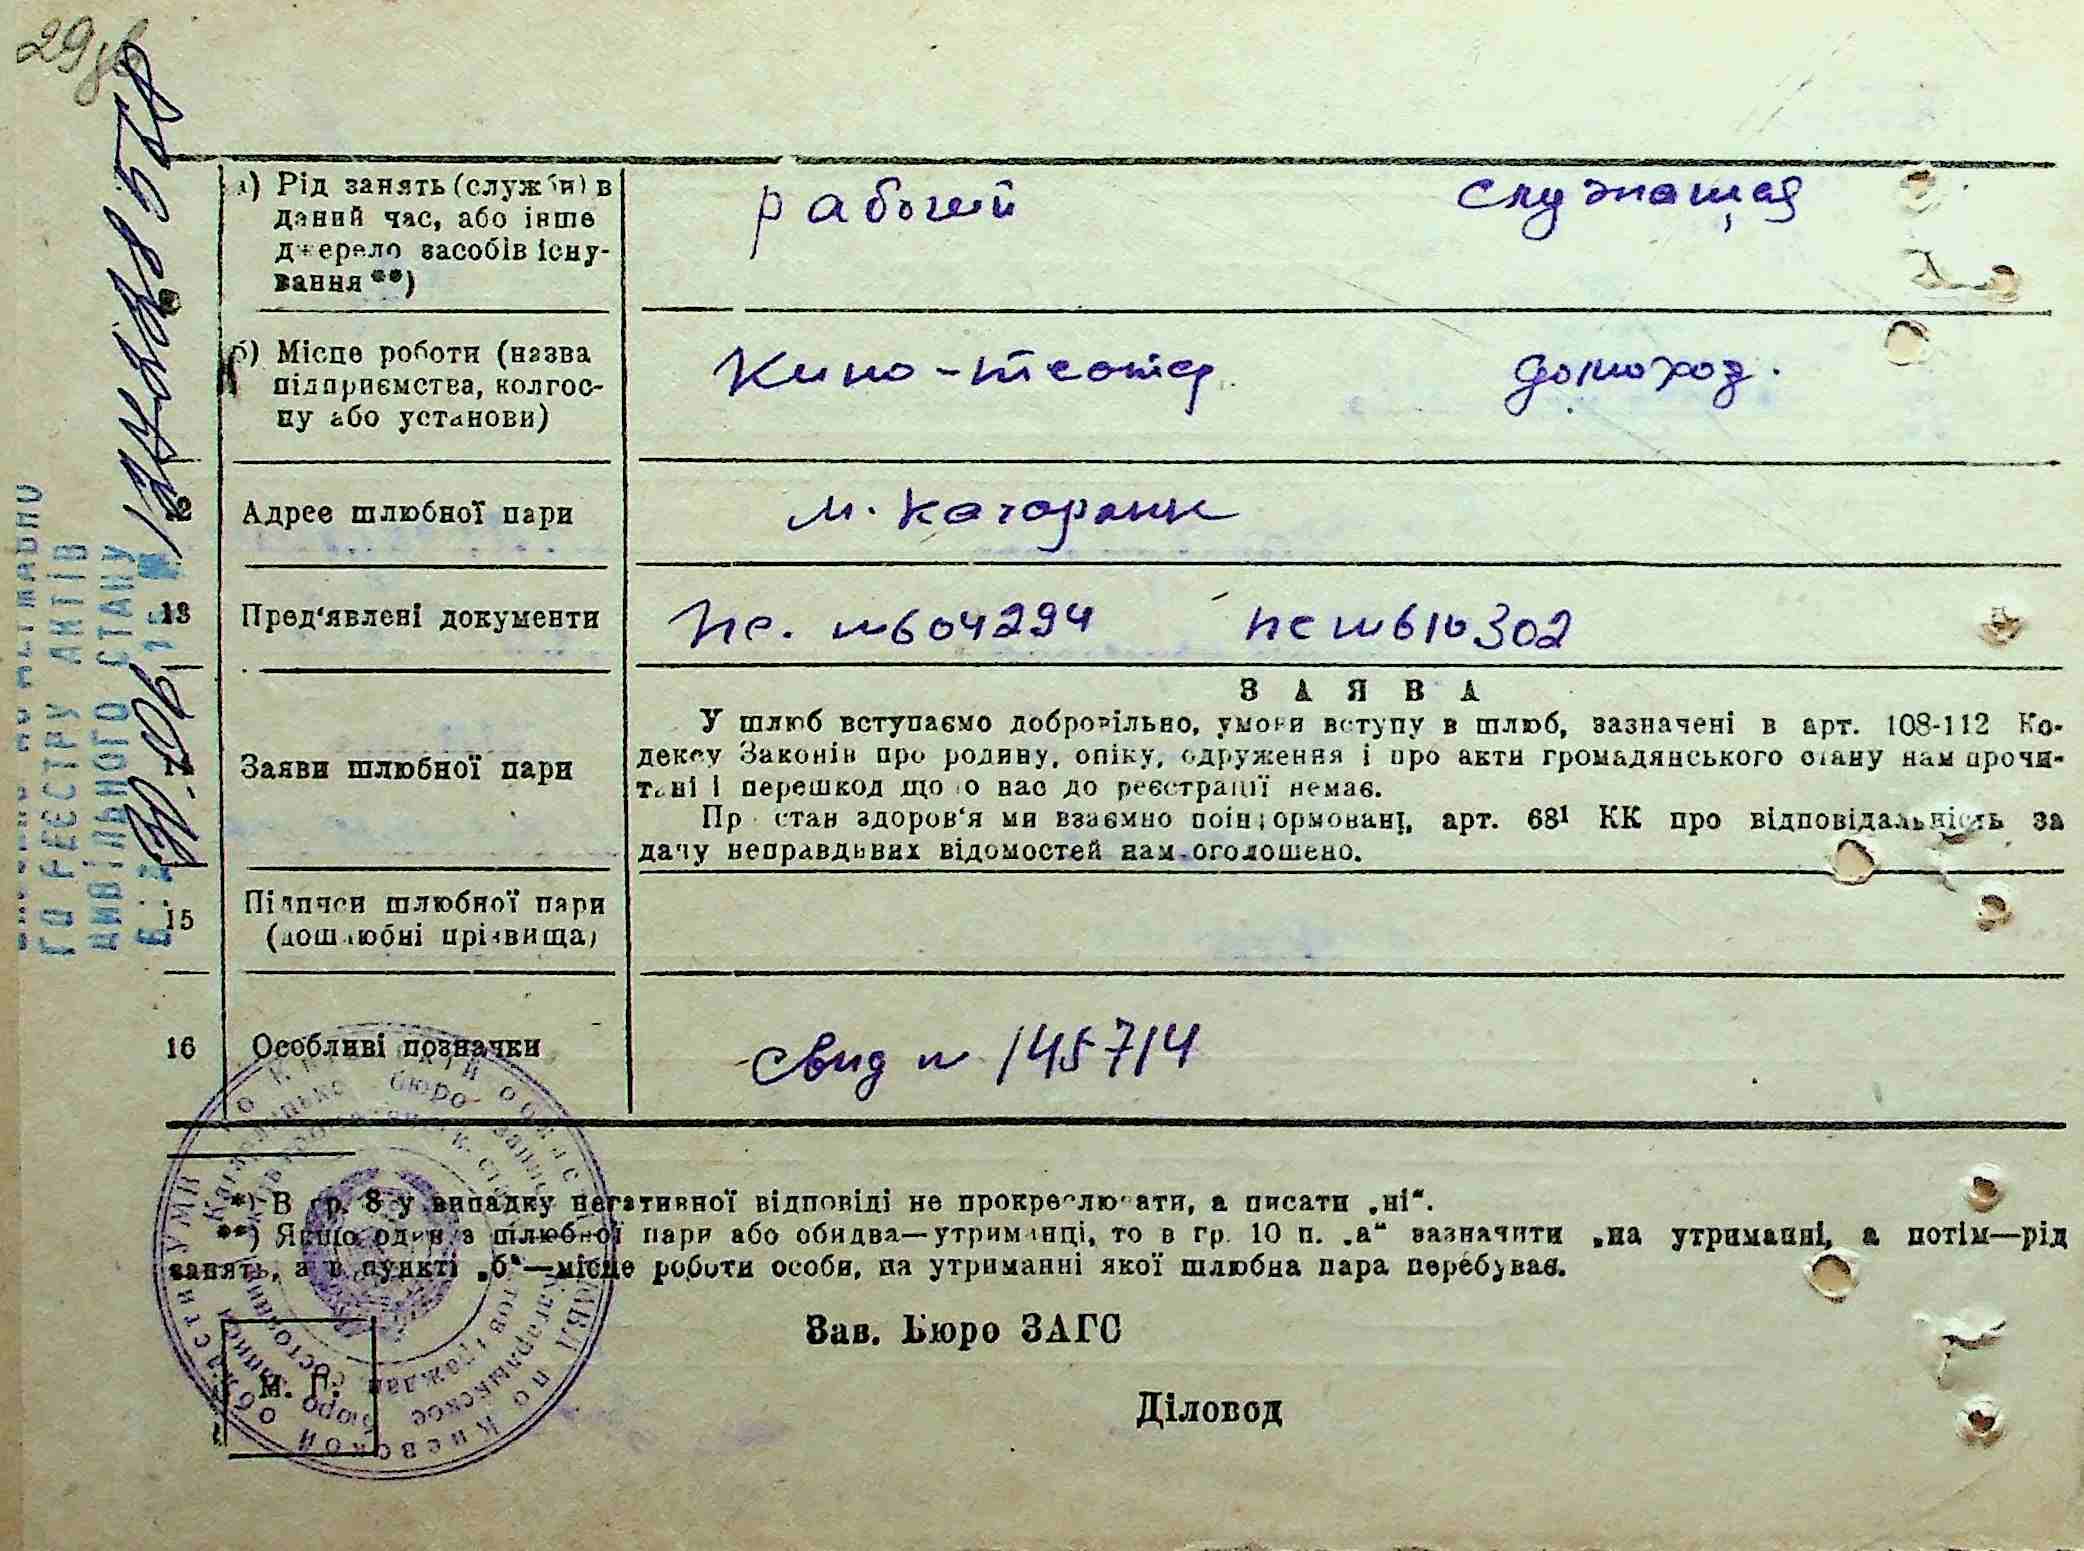 29зв
а) Рід занять (служби) в
даний час, або інше
джерело засобів існу-
вання **)
рабочий
служащая
б) Місце роботи (назва
підприємства, колгос-
пу або установи)
Кино-театр
домоход.
12
Адреє шлюбної пари
м. Кагарлик
13
Пред'явлені документи
604294
302
14
Заяви шлюбної пари
ЗАЯВА
У шлюб вступаємо добровільно, умови вступу в шлюб, зазначені в арт. 108-112 Ко-
дексу Законів про родину, опіку, одруження і про акти громадянського стану нам прочи-
тані і перешкод що до нас до реєстрації немає.
Про стан здоров'я ми взаємно поінформовані, арт. 68¹ КК про відповідальність за
дачу неправдивих відомостей нам оголошено.
15
Підписи шлюбної пари
(дошлюбні прізвища)
16
Особливі позначки
Свид № 145714
*) В гр. 8 у випадку негативної відповіді не прокреслювати, а писати „ні“.
**) Якщо один з шлюбної пари або обидва—утриманці, то в гр. 10 п. „а“ зазначити „на утриманні, а потім—рід
занять, а в пункті „б“—місце роботи особи, на утриманні якої шлюбна пара перебуває.
Зав. Бюро ЗАГС
Діловод
М. П.
ДО РЕЄСТРУ АКТІВ
ЦИВІЛЬНОГО СТАНУ